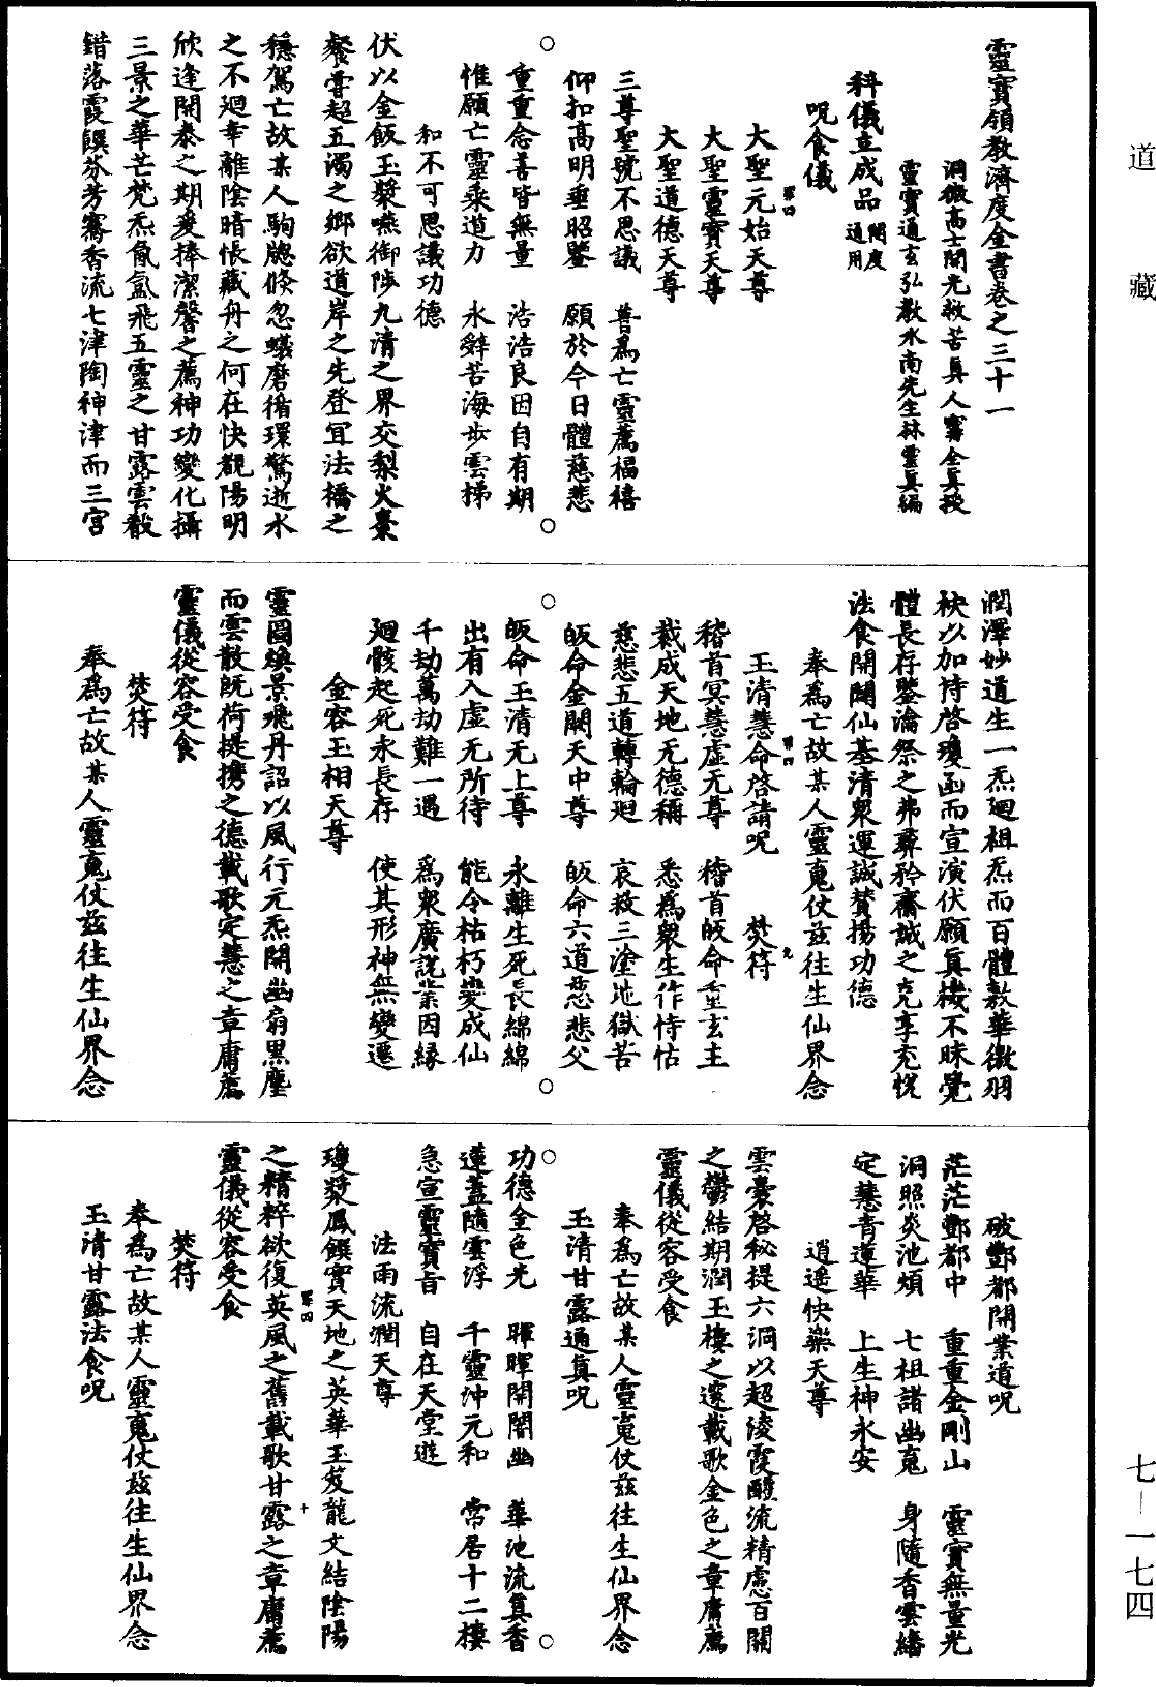 道藏
七—一七四
靈寶領教濟度金書卷之三十一
洞微高士開光救苦眞人甯全眞授
靈寶通玄弘教水南先生林靈眞編
科儀立成品 開度通用
呪食儀
罪四
大聖元始天尊
大聖靈寶天尊
大聖道德天尊
三尊聖號不思議 普爲亡靈薦福禧
仰扣高明垂昭鑒 願於今日體慈悲
重重念善皆無量 浩浩良因自有期
惟願亡靈乘道力 永辤苦海步雲梯
和不可思議功德
伏以金飯玉漿嚥御陟九清之界交梨火棗
飱嘗超五濁之鄉欲道岸之先登冝法橋之
穩駕亡故某人駒隙倐忽蟻磨循環驚逝水
之不廻幸離陰暗悵藏舟之何在快覩陽明
欣逢開泰之期爰捧潔馨之薦神功變化攝
三景之華芒梵炁氤氳飛五靈之甘露雲散
錯落霞饌芬芳騫香流七津陶神津而三宮
潤澤妙道生一炁廻祖炁而百體敷華徼羽
袂以加持啓瓊函而宣演伏願眞樓不昧覺
體長存鑒瀹祭之弗豐矜齋誠之克享充悅
法食開闡仙基清衆運誠贊揚功德
奉爲亡故某人靈䰟仗茲往生仙界念
罪四
玉清慧命啓請呪 焚符
九
稽首冥慧虛无尊 稽首皈命重玄主
裁成天地无德稱 悉爲衆生作恃怙
慈悲五道轉輪廻 哀救三塗地獄苦
皈命金闕天中尊 皈命六道慈悲父
皈命玉清无上尊 永離生死長綿綿
出有入虛无所待 能令枯朽變成仙
千劫萬劫難一遇 爲衆廣説業因緣
廻骸起死永長存 使其形神無變遷
金容玉相天尊
靈圖煥景飛丹詔以風行元炁開幽扃黑塵
而雲散既荷提携之德載歌定慧之章庸薦
靈儀從容受食
焚符
奉爲亡故某人靈䰟仗茲往生仙界念
破酆都開業道呪
茫茫酆都中 重重金剛山 靈寶無量光
洞照炎池煩 七祖諸幽䰟 身隨香雲旛
定慧青蓮華 上生神永安
逍遥快樂天尊
雲裹啓秘提六洞以超淩霞醴流精慮百關
之鬱結期潤玉樓之邃載歌金色之章庸薦
靈儀從容受食
奉爲亡故某人靈䰟仗茲往生仙界念
玉清甘露通眞呪
功德金色光 暉暉開闇幽 華池流眞香
蓮蓋隨雲浮 千靈冲元和 常居十二樓
急宣靈寶旨 自在天堂遊
法雨流潤天尊
瓊漿鳳饌實天地之英華玉笈龍文結陰陽
罪四 十
之精粹欲復英風之舊載歌甘露之章庸薦
靈儀從容受食
焚符
奉爲亡故某人靈䰟仗茲往生仙界念
玉清甘露法食呪